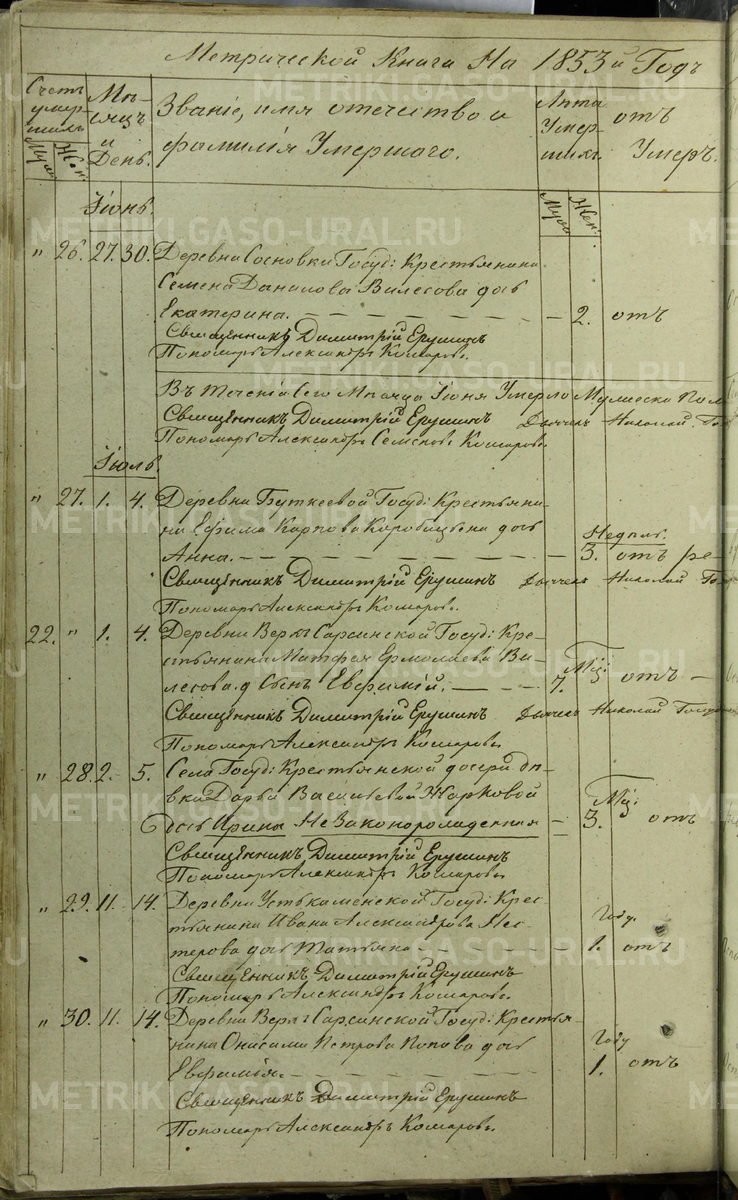 Метрической Книги На 1853й Годъ
Счетъ умер-шихъ
Муж. Жен.
Мѣ-сяцъ и День.
Званіе, имя отечество и фамилія Умершаго.
Лѣта Умер-шихъ
Муж. Жен.
отъ Умеръ.
Іюнь.
" 26. 27. 30. Деревни Сосновки Госуд: Крестьянина
Семена Данилова Вилесова дочь
Екатерина. 2. отъ
Священникъ Димитрій Ерушинъ
Пономарь Александръ Комаровъ.
Въ теченіи сего Мѣсяца Іюня Умерло Мужеска Пола
Священникъ Димитрій Ерушинъ Дьячекъ Николай
Пономарь Александръ Семеновъ Комаровъ
Іюль.
" 27. 1. 4. Деревни Буткеевой Госуд: Крестьяни-
на Ефима Карпова дочь
Недѣль.
Анна. 3. отъ
Священникъ Димитрій Ерушинъ Дьячекъ Николай
Пономарь Александръ Комаровъ.
22. " 1. 4. Деревни Верхъ Сарсинской Госуд: Кре-
стьянина Матфея Ермолаева Ви-
лесова Сынъ Евфимій. 7. отъ
Священникъ Димитрій Ерушинъ Дьячекъ Николай
Пономарь Александръ Комаровъ
" 28. 2. 5. Села Госуд: Крестьянской дочери дѣ-
вки Дарьи Васильевой Жарковой
дочь Ирина Незаконорожденная 3. отъ
Священникъ Димитрій Ерушинъ
Пономарь Александръ Комаровъ
" 29. 11. 14. Деревни Устькаменской Госуд: Крес-
тьянина Ивана Александрова Нес-
Году.
терова дочь Татьяна 1. отъ
Священникъ Димитрій Ерушинъ
Пономарь Александръ Комаровъ.
" 30. 11. 14. Деревни Верхъ Сарсинской Госуд: Крестья-
нина Онисима Петрова Попова дочь
Году
Евфимія. 1. отъ
Священникъ Димитрій Ерушинъ
Пономарь Александръ Комаровъ.
METRIKI.GASO-URAL.RU